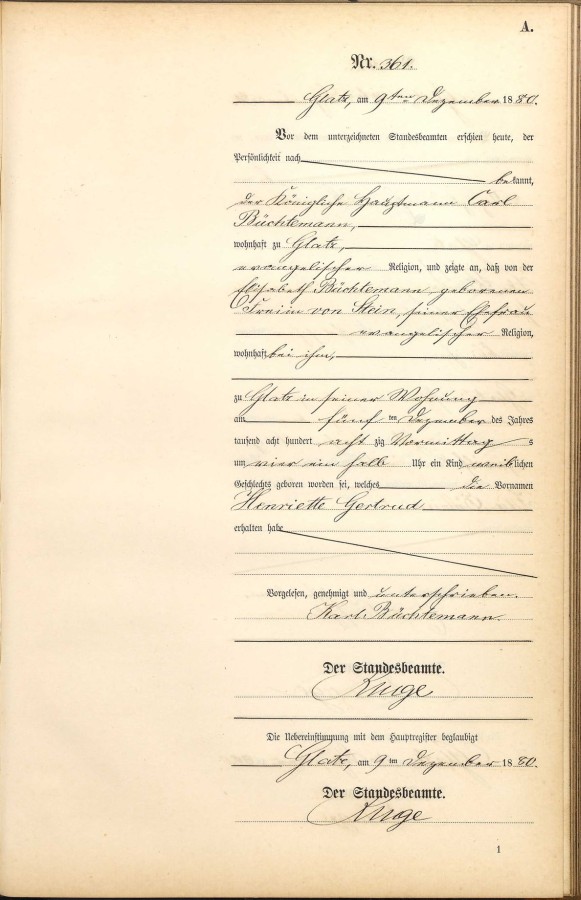 A.
Nr. 361.
Glatz, am 9ten Dezember 1880.
Vor dem unterzeichneten Standesbeamten erschien heute, der
Persönlichkeit nach
bekannt,
der Königliche Hauptmann Carl
Büchtemann,
wohnhaft zu Glatz,
evangelischer Religion, und zeigte an, daß von der
Elisabeth Büchtemann geborenen
Freiin von Stein, seiner Ehefrau
evangelischer Religion,
wohnhaft bei ihm,
zu Glatz in seiner Wohnung
am fünf ten Dezember des Jahres
tausend acht hundert acht zig Vormittag s
um vier ein halb Uhr ein Kind weiblichen
Geschlechts geboren worden sei, welches die Vornamen
Henriette Gertrud
erhalten habe
Vorgelesen, genehmigt und unterschrieben.
Karl Büchtemann.
Der Standesbeamte.
Kluge
Die Uebereinstimmung mit dem Hauptregister beglaubigt
Glatz, am 9ten Dezember 1880.
Der Standesbeamte.
Kluge
1